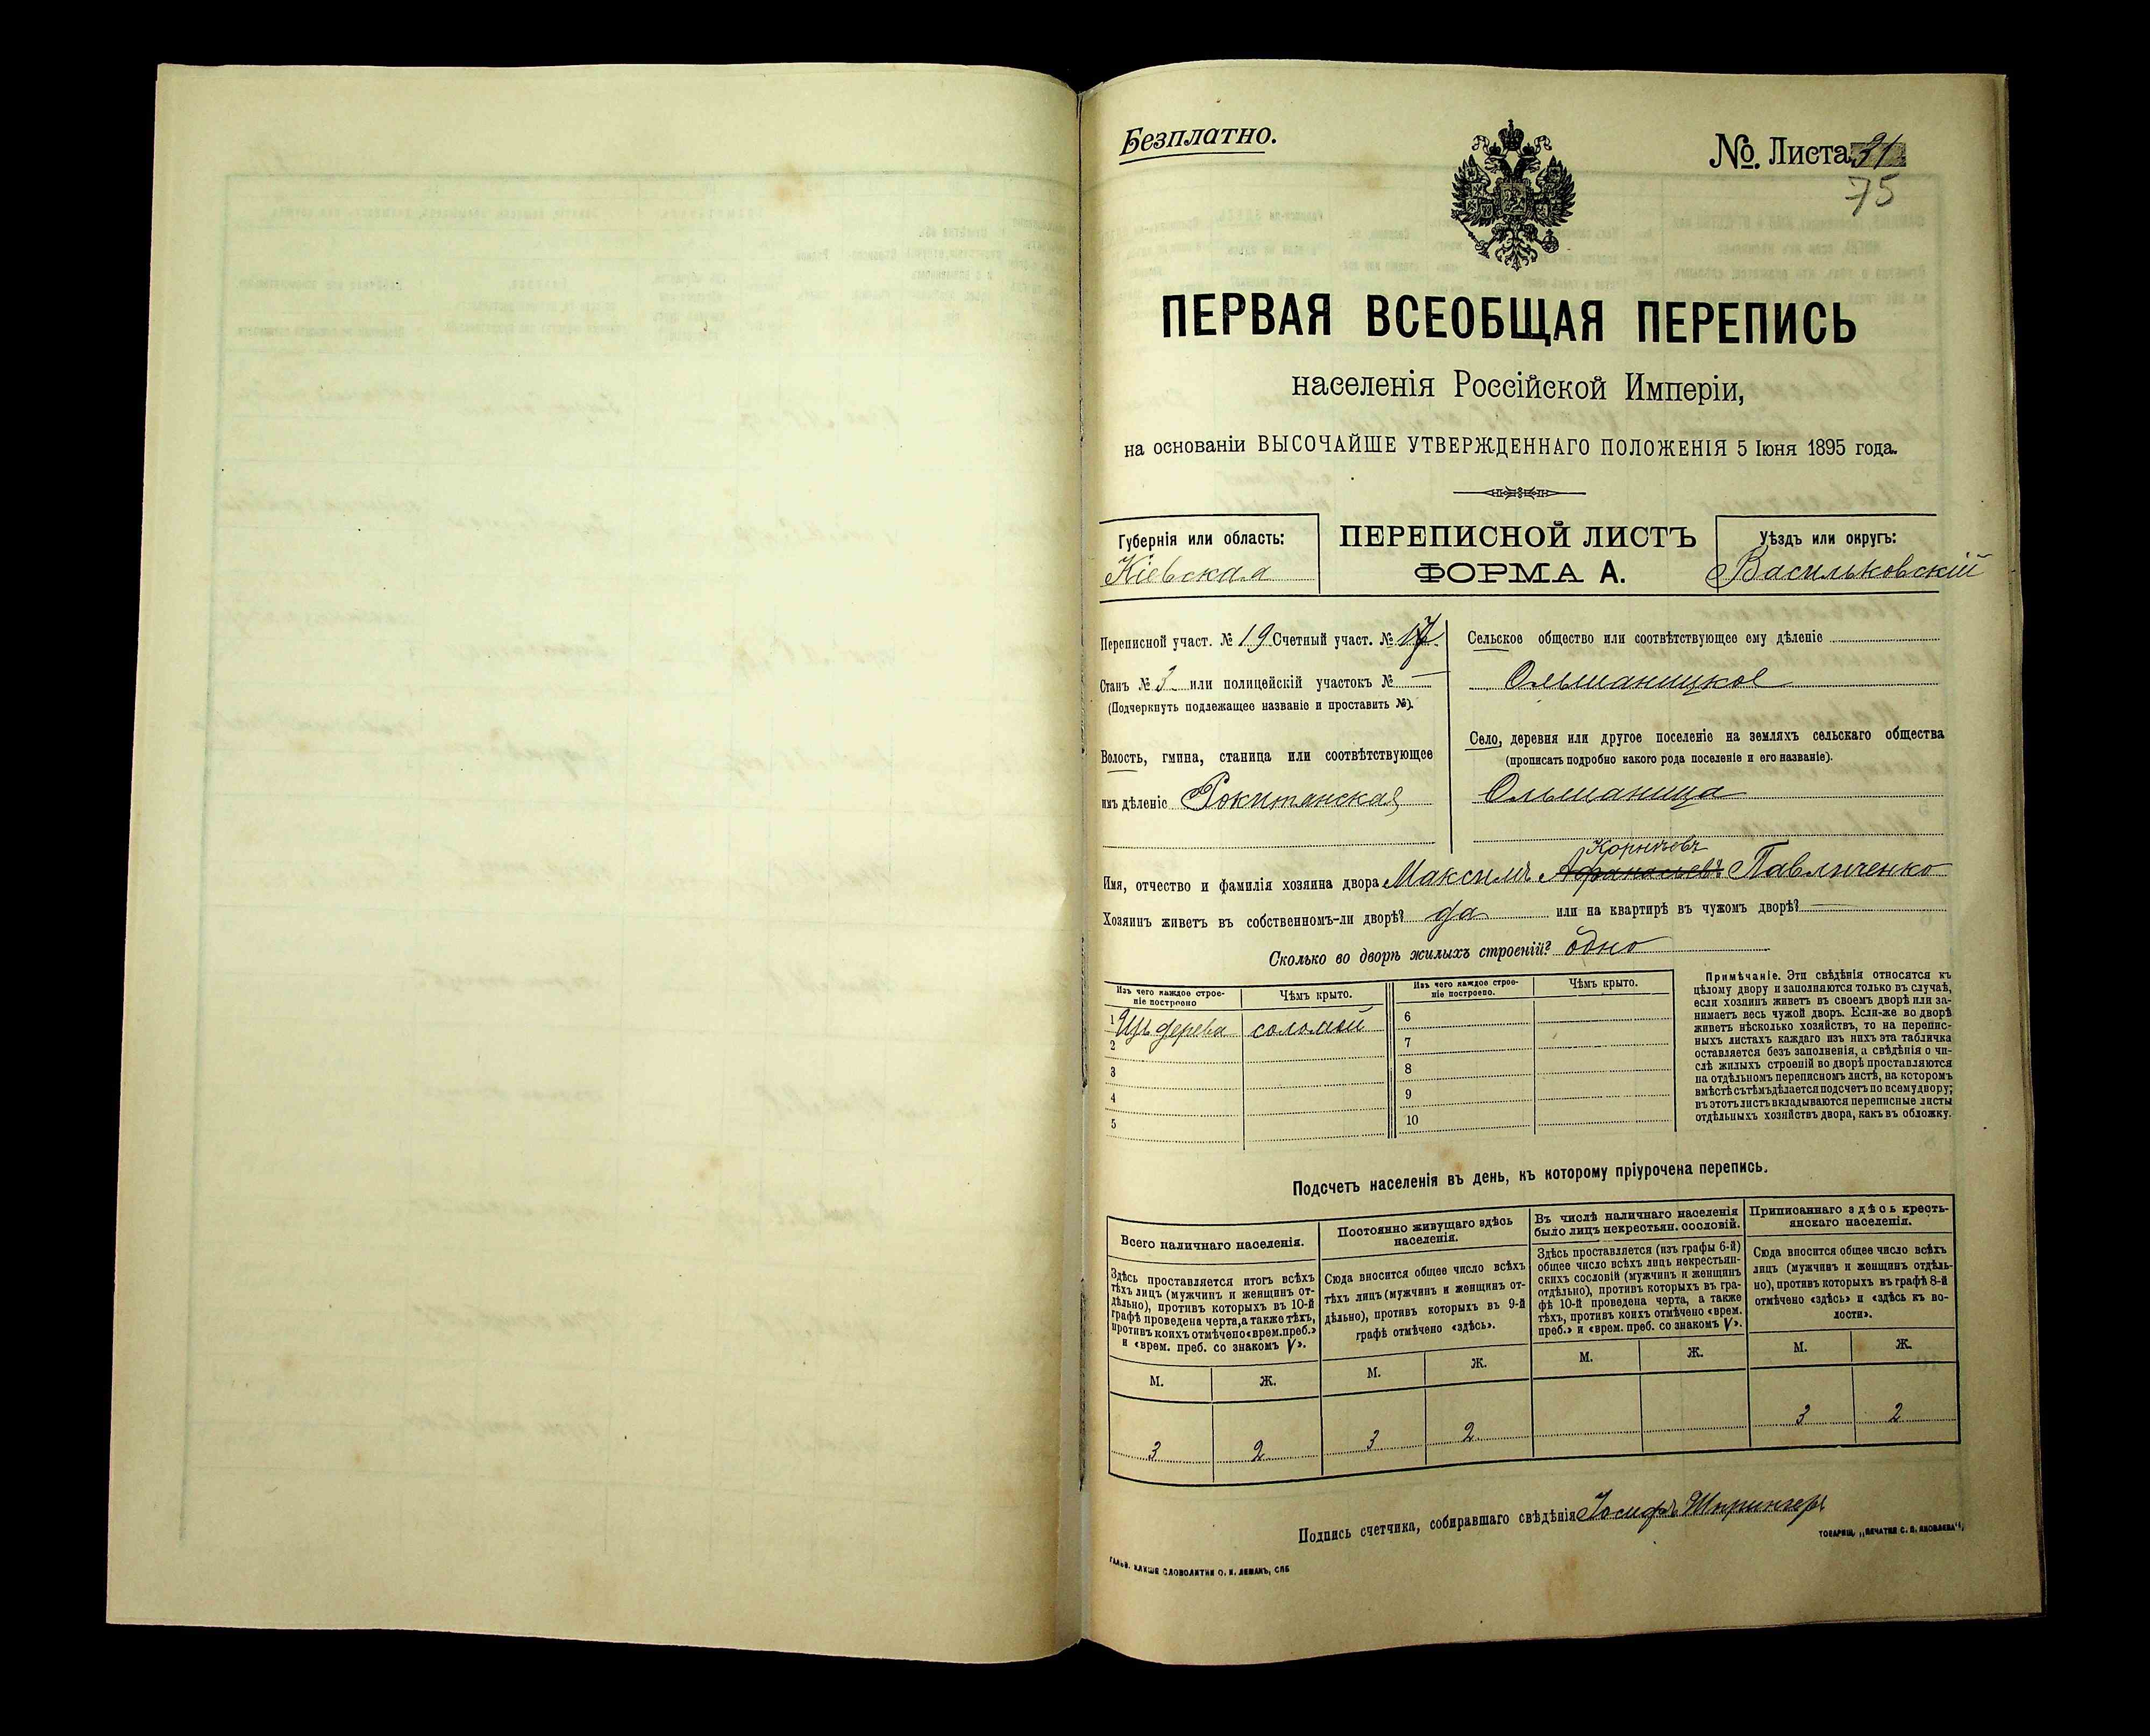 Безплатно.
№ Листа 31
75
ПЕРВАЯ ВСЕОБЩАЯ ПЕРЕПИСЬ
населенія Россійской Имперіи,
на основаніи ВЫСОЧАЙШЕ УТВЕРЖДЕННАГО ПОЛОЖЕНІЯ 5 Іюня 1895 года.
Губернія или область:
Кіевская
ПЕРЕПИСНОЙ ЛИСТЪ
ФОРМА А.
Уѣздъ или округъ:
Васильковскій
Переписной участ. № 19 Счетный участ. №
Станъ № 3 или полицейскій участокъ № —
(Подчеркнуть подлежащее названіе и проставить №).
Волость, гмина, станица или соотвѣтствующее
имъ дѣленіе Рокитанская
Сельское общество или соотвѣтствующее ему дѣленіе
Ольшаницкое
Село, деревня или другое поселеніе на земляхъ сельскаго общества
(прописать подробно какого рода поселеніе и его названіе).
Ольшаница
Корнѣевъ
Имя, отчество и фамилія хозяина двора Максимъ Афанасьевъ Павличенко
Хозяинъ живетъ въ собственномъ-ли дворѣ? да или на квартирѣ въ чужомъ дворѣ? —
Сколько во дворѣ жилыхъ строеній? одно
Изъ чего каждое строе-
ніе построено
Чѣмъ крыто.
Изъ чего каждое строе-
ніе построено.
Чѣмъ крыто.
1 Изъ дерева соломой
2
3
4
5
6
7
8
9
10
Примѣчаніе. Эти свѣдѣнія относятся къ
цѣлому двору и заполняются только въ случаѣ,
если хозяинъ живетъ въ своемъ дворѣ или за-
нимаетъ весь чужой дворъ. Если-же во дворѣ
живетъ нѣсколько хозяйствъ, то на перепис-
ныхъ листахъ каждаго изъ нихъ эта табличка
оставляется безъ заполненія, а свѣдѣнія о чи-
слѣ жилыхъ строеній во дворѣ проставляются
на отдѣльномъ переписномъ листѣ, на которомъ
вмѣстѣ съ тѣмъ дѣлается подсчетъ по всему двору;
въ этотъ листъ вкладываются переписные листы
отдѣльныхъ хозяйствъ двора, какъ въ обложку.
Подсчетъ населенія въ день, къ которому пріурочена перепись.
Всего наличнаго населенія.
Здѣсь проставляется итогъ всѣхъ
тѣхъ лицъ (мужчинъ и женщинъ от-
дѣльно), противъ которыхъ въ 10-й
графѣ проведена черта, а также тѣхъ,
противъ коихъ отмѣчено «врем. преб.»
и «врем. преб. со знакомъ V».
М. Ж.
3 2
Постоянно живущаго здѣсь
населенія.
Сюда вносится общее число всѣхъ
тѣхъ лицъ (мужчинъ и женщинъ от-
дѣльно), противъ которыхъ въ 9-й
графѣ отмѣчено «здѣсь».
М. Ж.
3 2
Въ числѣ наличнаго населенія
было лицъ некрестьян. сословій.
Здѣсь проставляется (изъ графы 6-й)
общее число всѣхъ лицъ некрестьян-
скихъ сословій (мужчинъ и женщинъ
отдѣльно), противъ которыхъ въ гра-
фѣ 10-й проведена черта, а также
тѣхъ, противъ коихъ отмѣчено «врем.
преб.» и «врем. преб. со знакомъ V».
М. Ж.
Приписаннаго здѣсь кресть-
янскаго населенія.
Сюда вносится общее число всѣхъ
лицъ (мужчинъ и женщинъ отдѣль-
но), противъ которыхъ въ графѣ 8-й
отмѣчено «здѣсь» и «здѣсь къ во-
лости».
М. Ж.
3 2
Подпись счетчика, собиравшаго свѣдѣнія Іосифъ Шпрингеръ
ГАЛЬВ. КЛИШЕ СЛОВОЛИТНИ О. И. ЛЕМАНЪ, СПБ
ТОВАРИЩ. „ПЕЧАТНЯ С. П. ЯКОВЛЕВА“